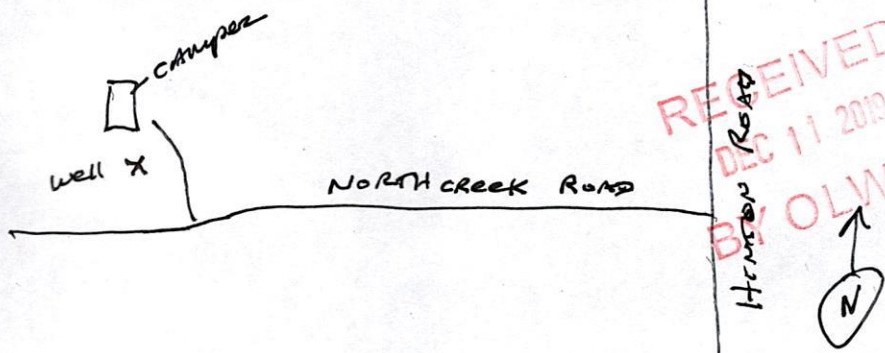 camper
well X
NORTH CREEK ROAD
ROAD
RECEIVED
DEC 11 2019
BY OLW
N